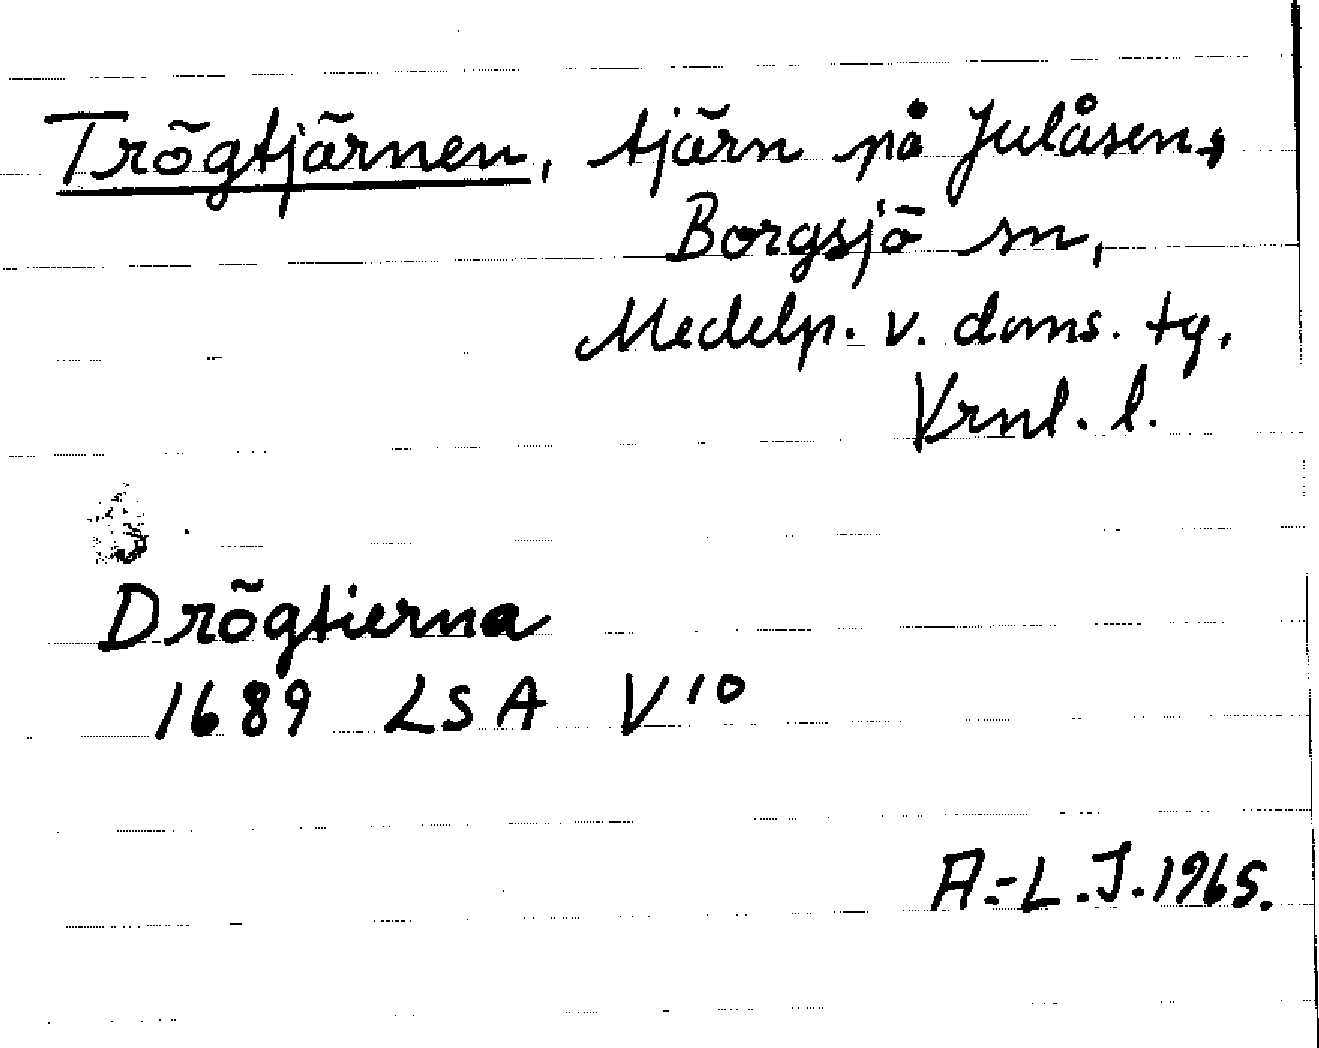 Trögtjärnen, tjärn på Julåsen,
Borgsjö sn,
Medelp. v. doms. tg,
Vrnl. l.
Drögtierna
1689 LSA V10
A.-L.J. 1965.